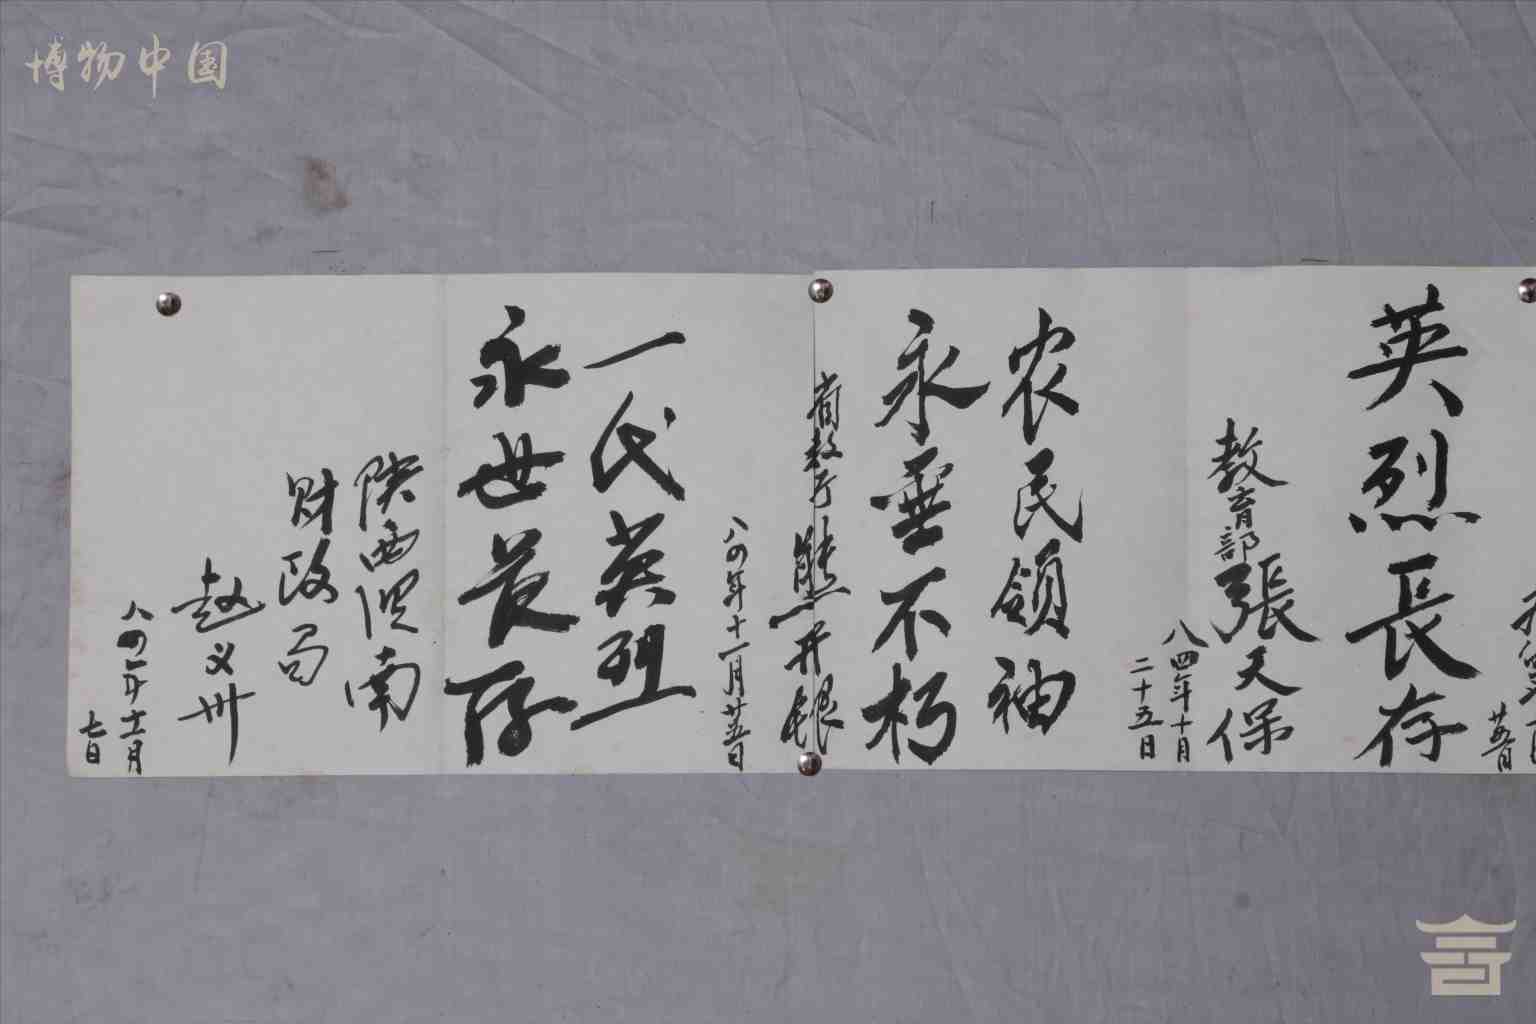 博物中国
英烈長存
教育部張天保
八四年十月
二十五日
农民领袖
永垂不朽
省教厅熊开银
八四年十一月廿五日
一代英烈
永世长存
陕西汉南
财政局
赵义州
八四年十一月
七日